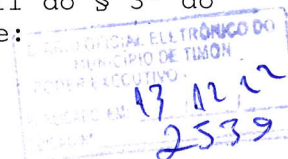 II do § 3º do
e:
DIÁRIO OFICIAL ELETRÔNICO DO
MUNICÍPIO DE TIMON
PODER EXECUTIVO
EM 13 12 22
2539